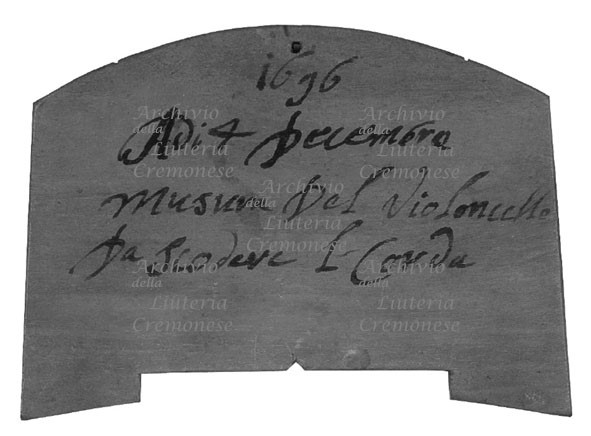 1696
Adi 4 Decembre
musura del violoncello
da
Archivio
della
Liuteria
Cremonese
Archivio
della
Liuteria
Cremonese
Archivio
della
Liuteria
Cremonese
Archivio
della
Liuteria
Cremonese
Archivio
della
Liuteria
Cremonese